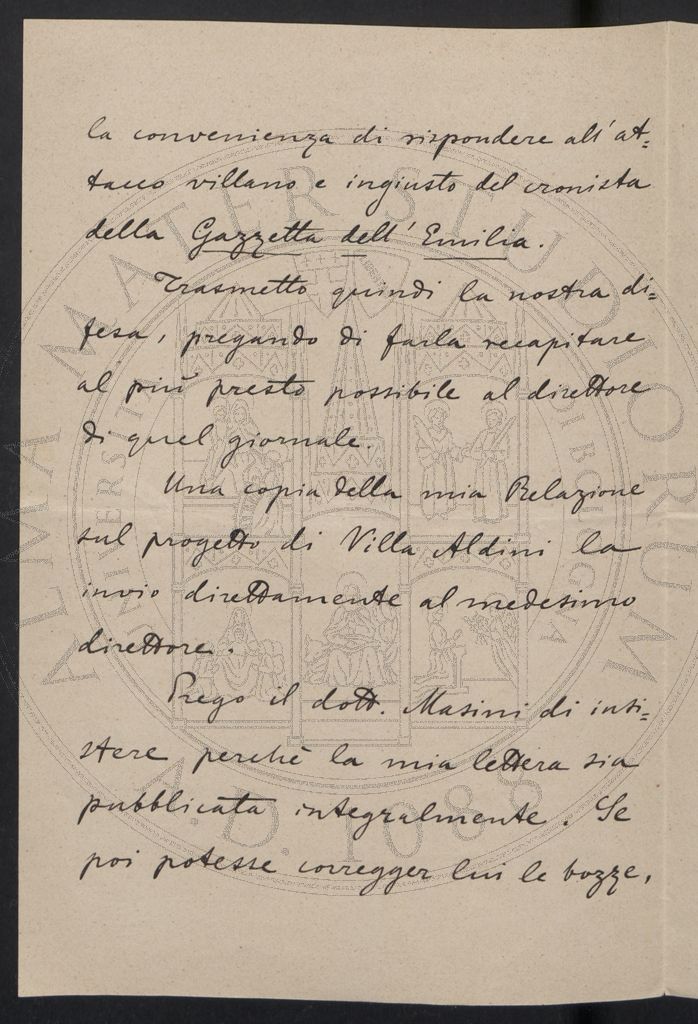 la convenienza di rispondere all'at=
tacco villano e ingiusto del cronista
della Gazzetta dell'Emilia.
Trasmetto quindi la nostra di=
fesa, pregando di farla recapitare
al più presto possibile al direttore
di quel giornale.
Una copia della mia Relazione
sul progetto di Villa Aldini la
invio direttamente al medesimo
direttore.
Prego il dott. Masini di insi=
stere perchè la mia lettera sia
pubblicata integralmente. Se
poi potesse corregger lui le bozze,
ALMA MATER STUDIORUM
A.D. 1088